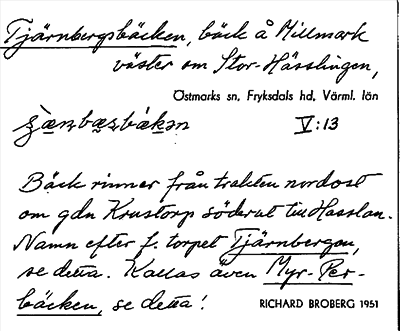 Tjärnbergsbäcken, bäck å Millmark
väster om Stor-Hässlingen,
Östmarks sn, Fryksdals hd, Värml. län
V:13
Bäck rinner från trakten nordost
om gdn Krustorp söderut till Hasslan.
Namn efter f. torpet Tjärnbergan,
se detta. Kallas även Myr-Per-
bäcken, se detta!
RICHARD BROBERG 1951